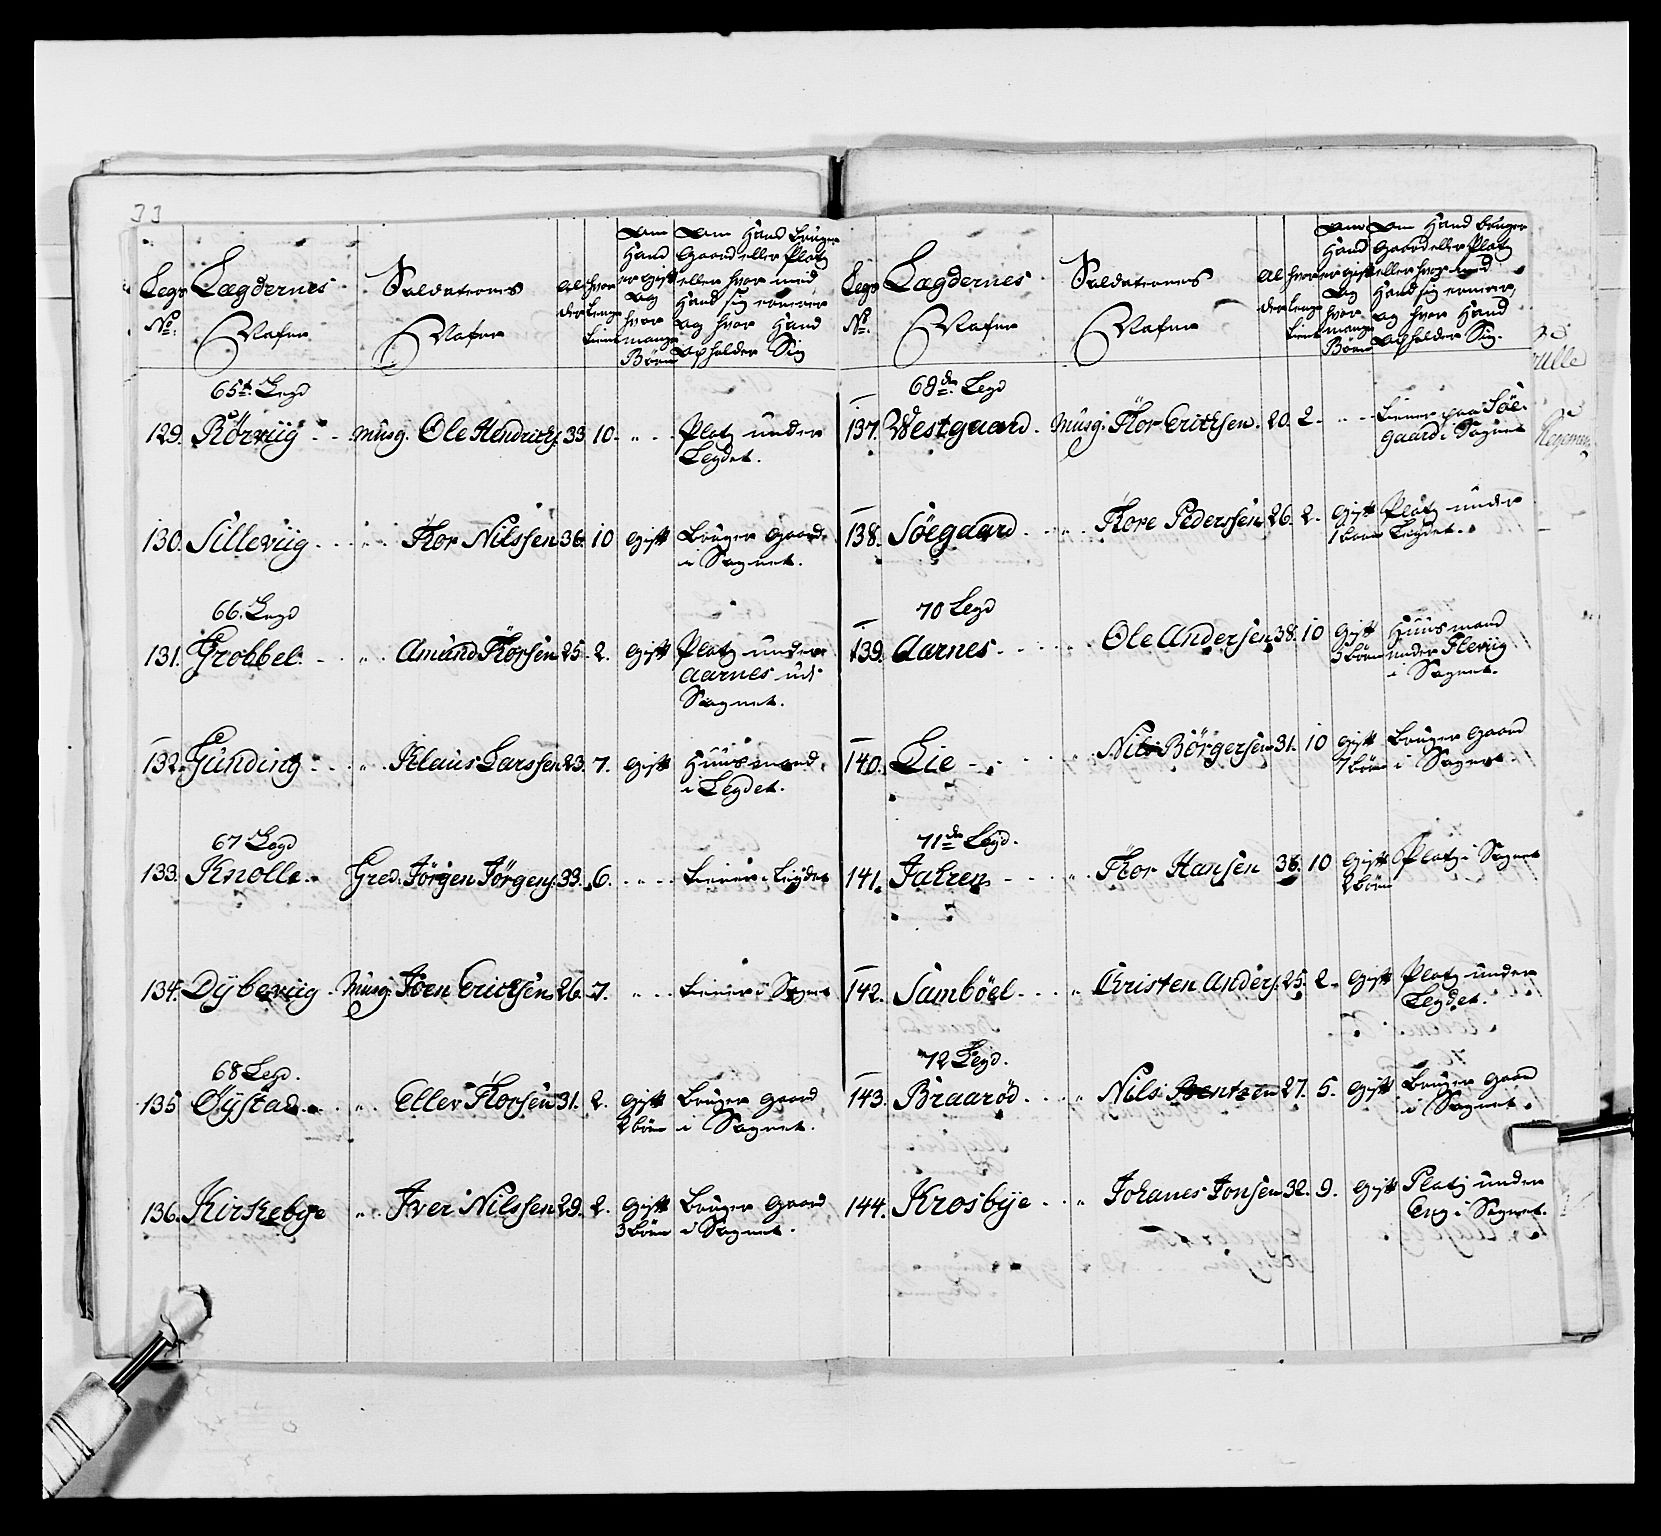 33
Legs No: Lægdernes Nafne Soldaternes Nafne Alder hvor lenge tient Om Hand er gift og hvor mange Børn Om Hand bruger Gaard eller Platz eller hvor med Hand sig ernerer og hvor Hand opholder Sig
65de Legd
129. Rörviig Musq. Ole Hendrichs. 33. 10. Platz under
Legdet.
130. Silleviig Thor Nilssen 36. 10 gift Bruger Gaard
i Sognet.
66. Legd
131. Grobbel Amund Thorsen 25. 2. gift Platz under
Aarnes udj
Sognet.
132. Gunding Klaus Larssen 23. 7. gift Huusmand
i Legdet.
67 Legd
133. Knolle Gred. Jörgen Jörgens. 33. 6. tiener i Legdet
134. Dybeviig Musq. Joen Erichsen 26. 7. tiener i Sognet
68 Legd.
135 Öystad Ellev Thorsen 31. 2. gift Bruger Gaard
2 börn i Sognet.
136. Kirkebye Iver Nilssen 29. 2. gift Bruger Gaard
3 börn i Sognet.
Legs No. Lægdernes Nafne Soldaternes Nafne Alder hvor lenge tient Om Hand er gift og hvor mange Börn Om Hand bruger Gaard eller Platz eller hvor med Hand sig ernerer, og hvor Hand opholder Sig.
69de Legd
137. Westgaard Musq. Thor Erichsen 20. 2. tiener paa Söe-
gaard i Sognet
138. Söegaard Thore Pederssen 26. 2. gift Platz under
1 barn Legdet.
70 Legd
139. Aarnes Ole Andersen 38. 10 gift Huusmand
3 börn under Fleviig
i Sognet.
140. Lie Nils Börgersen 31. 10 gift Bruger Gaard
7 börn i Sognet
71de Legd.
141. Jahren Thor Hansen 38. 10 gift Platz i Sognet
2 börn
142. Samböel Christen Anders. 25. 2. gift Platz under
Legdet.
72 Legd.
143. Braaröd Nils Bentzen 27. 5. gift Bruger Gaard
i Sognet.
144. Krosbye Johanes Jonsen 32. 9. gift Platz under
Eng i Sognet.